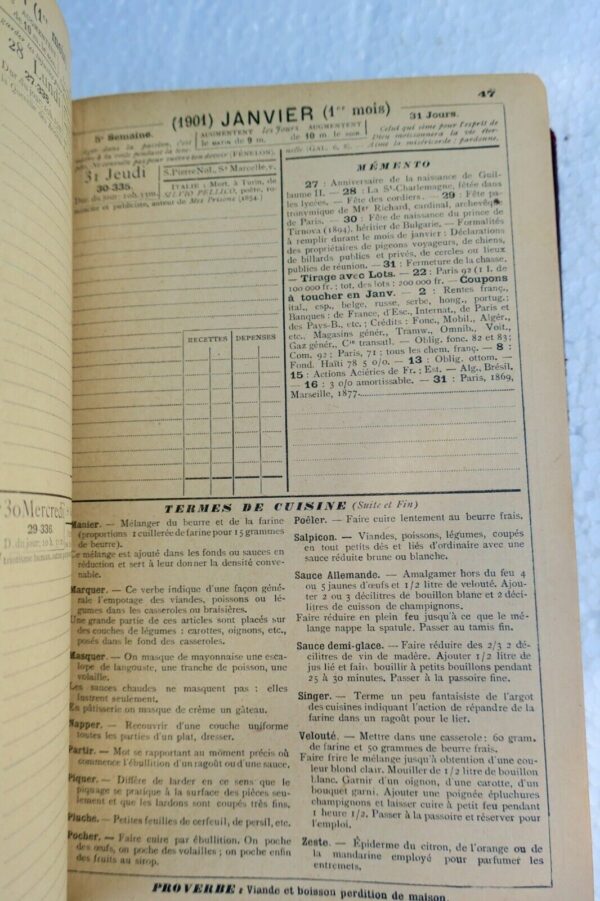 28
30 Mercredi
29-336
47
(1901) JANVIER (1er mois)
5e Semaine.
AUGMENTENT les Jours AUGMENTENT
le matin de 9 m. de 10 m. le soir.
31 Jours.
Celui qui sème pour l'esprit de
Dieu moissonnera la vie éter-
nelle (GAL. 6, 8). — Aime la miséricorde : pardonne.
(FÉNELON).
31 Jeudi
30-335.
S. Pierre Nol., Ste Marcelle, v.
ITALIE : Mort, à Turin, de
SILVIO PELLICO, poète, ro-
mancier et publiciste, auteur de Mes Prisons (1854.)
RECETTES
DEPENSES
MÉMENTO
27 : Anniversaire de la naissance de Guil-
laume II. — 28 : La St-Charlemagne, fêtée dans
les lycées. — Fête des cordiers. — 29 : Fête pa-
tronymique de Mgr Richard, cardinal, archevêque
de Paris. — 30 : Fête de naissance du prince de
Tirnova (1894), héritier de Bulgarie. — Formalités
à remplir durant le mois de janvier : Déclarations
des propriétaires de pigeons voyageurs, de chiens,
de billards publics et privés, de cercles ou lieux
publics de réunion. — 31 : Fermeture de la chasse.
— Tirage avec Lots. — 22 : Paris 92 (1 l. de
100 000 fr. ; tot. des lots : 200 000 fr. — Coupons
à toucher en Janv. — 2 : Rentes franç.,
ital., esp., belge, russe, serbe, hong., portug.;
Banques : de France, d'Esc., Internat., de Paris et
des Pays-B., etc.; Crédits : Fonc., Mobil., Algér.,
etc., Magasins génér., Tramw., Omnib., Voit.,
Gaz génér., Cie transatl. — Oblig. fonc. 82 et 83;
Com. 92 : Paris, 71 : tous les chem. franç. — 8 :
Fond. Haïti 78 5 0/0. — 13 : Oblig. ottom. —
15 : Actions Aciéries de Fr.; Est. — Alg., Brésil,
— 16 : 3 0/0 amortissable. — 31 : Paris, 1869,
Marseille, 1877.
TERMES DE CUISINE (Suite et Fin)
Manier. — Mélanger du beurre et de la farine
(proportions 1 cuillerée de farine pour 15 grammes
de beurre).
Ce mélange est ajouté dans les fonds ou sauces en
réduction et sert à leur donner la densité conve-
nable.
Marquer. — Ce verbe indique d'une façon géné-
rale l'empotage des viandes, poissons ou lé-
gumes dans les casseroles ou braisières.
Une grande partie de ces articles sont placés sur
des couches de légumes : carottes, oignons, etc.,
posés dans le fond des casseroles.
Masquer. — On masque de mayonnaise une esca-
lope de langouste, une tranche de poisson, une
volaille.
Les sauces chaudes ne masquent pas : elles
lustrent seulement.
En pâtisserie on masque de crème un gâteau.
Napper. — Recouvrir d'une couche uniforme
toutes les parties d'un plat, dresser.
Partir. — Mot se rapportant au moment précis où
commence l'ébullition d'un ragoût ou d'une sauce.
Piquer. — Diffère de larder en ce sens que le
piquage se pratique à la surface des pièces seu-
lement et que les lardons sont coupés très fins.
Pluche. — Petites feuilles de cerfeuil, de persil, etc.
Pocher. — Faire cuire par ébullition. On poche
des œufs, on poche des volailles ; on poche enfin
des fruits au sirop.
Poëler. — Faire cuire lentement au beurre frais.
Salpicon. — Viandes, poissons, légumes, coupés
en tout petits dés et liés d'ordinaire avec une
sauce réduite brune ou blanche.
Sauce Allemande. — Amalgamer hors du feu 4
ou 5 jaunes d'œufs et 1/2 litre de velouté. Ajou-
ter 2 ou 3 décilitres de bouillon blanc et 2 déci-
litres de cuisson de champignons.
Faire réduire en plein feu jusqu'à ce que le mé-
lange nappe la spatule. Passer au tamis fin.
Sauce demi-glace. — Faire réduire des 2/3 2 dé-
cilitres de vin de madère. Ajouter 1/2 litre de
jus lié et faire bouillir à petits bouillons pendant
25 à 30 minutes. Passer à la passoire fine.
Singer. — Terme un peu fantaisiste de l'argot
des cuisines indiquant l'action de répandre de la
farine dans un ragoût pour le lier.
Velouté. — Mettre dans une casserole : 60 gram.
de farine et 50 grammes de beurre frais.
Faire frire le mélange jusqu'à obtention d'une cou-
leur blond clair. Mouiller de 1/2 litre de bouillon
blanc. Garnir d'un oignon, d'une carotte, d'un
bouquet garni. Ajouter une poignée épluchures
champignons et laisser cuire à petit feu pendant
1 heure 1/2. Passer à la passoire et réserver pour
l'emploi.
Zeste. — Épiderme du citron, de l'orange ou de
la mandarine employé pour parfumer les
entremets.
PROVERBE : Viande et boisson perdition de maison.